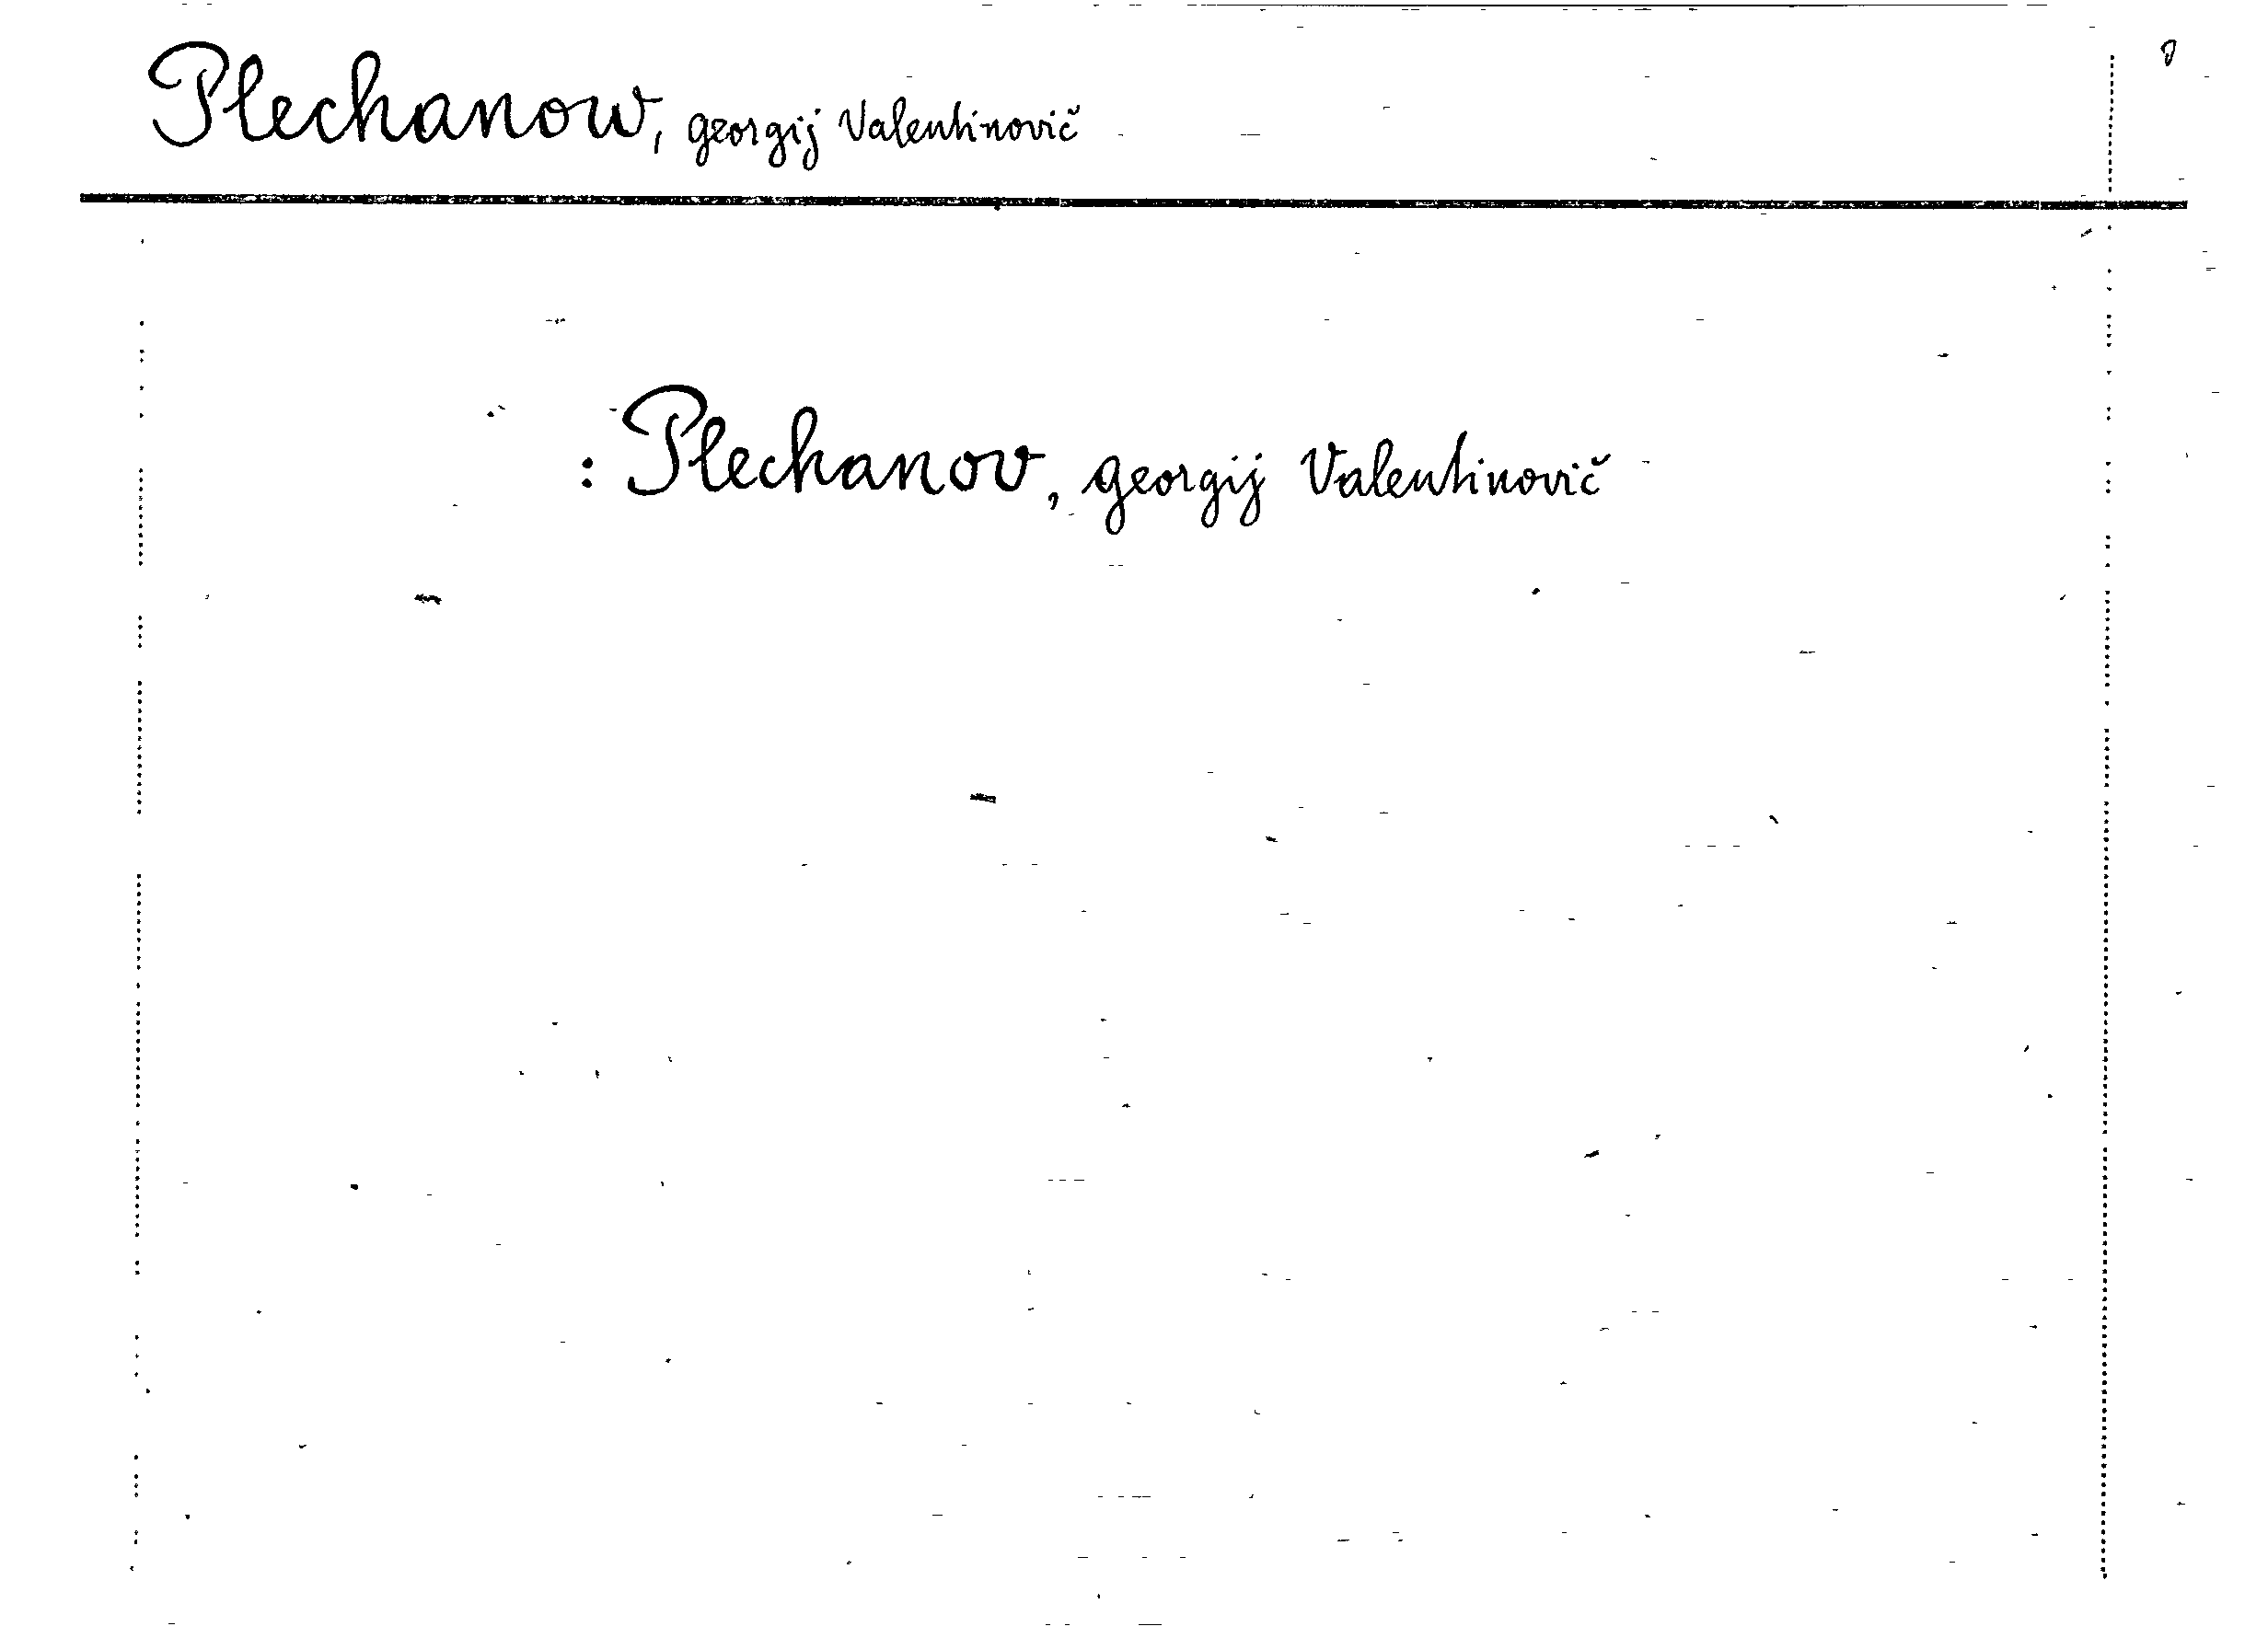 Plechanow, Georgij Valentinovič
: Plechanov, Georgij Valentinovič